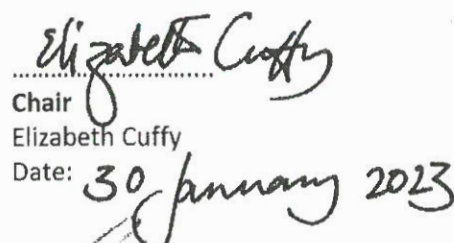 Elizabeth Cuffy
....................................
Chair
Elizabeth Cuffy
Date: 30 January 2023